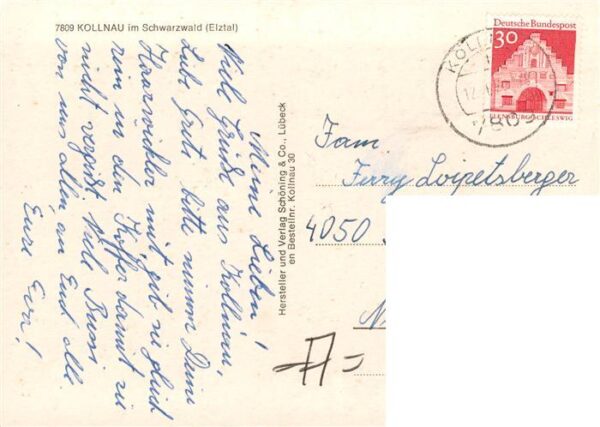 7809 KOLLNAU im Schwarzwald (Elztal)
Meine Lieben!
Viel Grüße aus Kollnau,
Liebe Gusti bitte nimm Deine
Haarwickler mit, gib sie gleich
rein in den Koffer damit du
nicht vergißt. Viele Bussi
von uns allen, an Euch alle.
Eure Eva!
Hersteller und Verlag Schöning & Co., Lübeck
en Bestellnr. Kollnau 30
Deutsche Bundespost
30
FLENSBURG/SCHLESWIG
KOLLN
780
Fam.
Ferry Loipetsberger
4050
A=